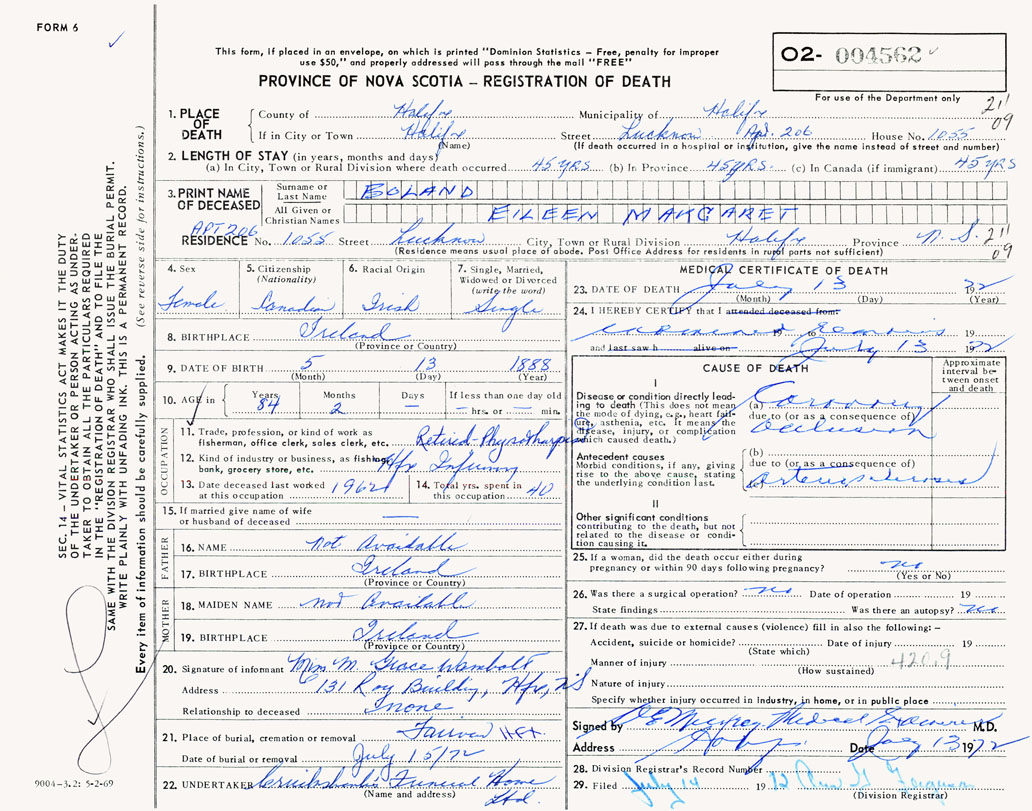 FORM 6
This form, if placed in an envelope, on which is printed "Dominion Statistics – Free, penalty for improper
use $50," and properly addressed will pass through the mail "FREE"
PROVINCE OF NOVA SCOTIA – REGISTRATION OF DEATH
O2- 004562
For use of the Department only
211
09
1. PLACE OF DEATH
County of Halifx Municipality of Halifx
If in City or Town Halifx Street Lucknow Apt. 206 House No. 1055
(Name) (If death occurred in a hospital or institution, give the name instead of street and number)
2. LENGTH OF STAY (in years, months and days)
(a) In City, Town or Rural Division where death occurred 45 YRS (b) In Province 45 YRS. (c) In Canada (if immigrant) 45 YRS
3. PRINT NAME OF DECEASED
Surname or Last Name BOLAND
All Given or Christian Names EILEEN MARGARET
APT 206
RESIDENCE No. 1055 Street Lucknow City, Town or Rural Division Halifx Province N.S. 211
09
(Residence means usual place of abode. Post Office Address for residents in rural parts not sufficient)
4. Sex
Female
5. Citizenship
(Nationality)
Canadian
6. Racial Origin
Irish
7. Single, Married,
Widowed or Divorced
(write the word)
Single
8. BIRTHPLACE Ireland
(Province or Country)
9. DATE OF BIRTH 5 13 1888
(Month) (Day) (Year)
10. AGE in
Years 84
Months 2
Days –
If less than one day old
– hrs. or – min.
OCCUPATION
11. Trade, profession or kind of work as
fisherman, office clerk, sales clerk, etc. Retired-Physotharpist
12. Kind of industry or business, as fishing,
bank, grocery store, etc. Hfx Infirmy
13. Date deceased last worked
at this occupation 1962
14. Total yrs. spent in
this occupation 40
15. If married give name of wife
or husband of deceased —
FATHER
16. NAME Not Available
17. BIRTHPLACE Ireland
(Province or Country)
MOTHER
18. MAIDEN NAME Not Available
19. BIRTHPLACE Ireland
(Province or Country)
20. Signature of informant M. Grace Wambolt
Address 131 Roy Building, Hfx, NS
Relationship to deceased None
21. Place of burial, cremation or removal Fairview Hfx
Date of burial or removal July 15/72
22. UNDERTAKER Cruikshanks Funeral Home
(Name and address) Ltd.
MEDICAL CERTIFICATE OF DEATH
23. DATE OF DEATH July 13 1972
(Month) (Day) (Year)
24. I HEREBY CERTIFY that I attended deceased from:
examined remains 19 to 19
and last saw h alive on July 13 1972
CAUSE OF DEATH
Approximate
interval be-
tween onset
and death
I
Disease or condition directly lead-
ing to death (This does not mean
the mode of dying, e.g., heart fail-
ure, asthenia, etc. It means the
disease, injury, or complication
which caused death.)
(a) Coronary
due to (or as a consequence of)
Occlusion
Antecedent causes
Morbid conditions, if any, giving
rise to the above cause, stating
the underlying condition last.
(b)
due to (or as a consequence of)
(c) Arteriosclerosis
II
Other significant conditions
contributing to the death, but not
related to the disease or condi-
tion causing it.
25. If a woman, did the death occur either during
pregnancy or within 90 days following pregnancy? no
(Yes or No)
26. Was there a surgical operation? no Date of operation 19
State findings Was there an autopsy? no
27. If death was due to external causes (violence) fill in also the following: –
Accident, suicide or homicide? Date of injury 19
(State which)
Manner of injury 420.9
(How sustained)
Nature of injury
Specify whether injury occurred in industry, in home, or in public place
Signed by Medical Examiner M.D.
Address Date July 13 1972
28. Division Registrar's Record Number
29. Filed July 14 1972 Ferguson
(Division Registrar)
SEC. 14 – VITAL STATISTICS ACT MAKES IT THE DUTY
OF THE UNDERTAKER OR PERSON ACTING AS UNDER-
TAKER TO OBTAIN ALL THE PARTICULARS REQUIRED
IN THE "REGISTRATION OF DEATH" AND TO FILE THE
SAME WITH THE DIVISION REGISTRAR WHO SHALL ISSUE THE BURIAL PERMIT.
WRITE PLAINLY WITH UNFADING INK. THIS IS A PERMANENT RECORD.
Every item of information should be carefully supplied. (See reverse side for instructions.)
9004-3.2: 5-2-69